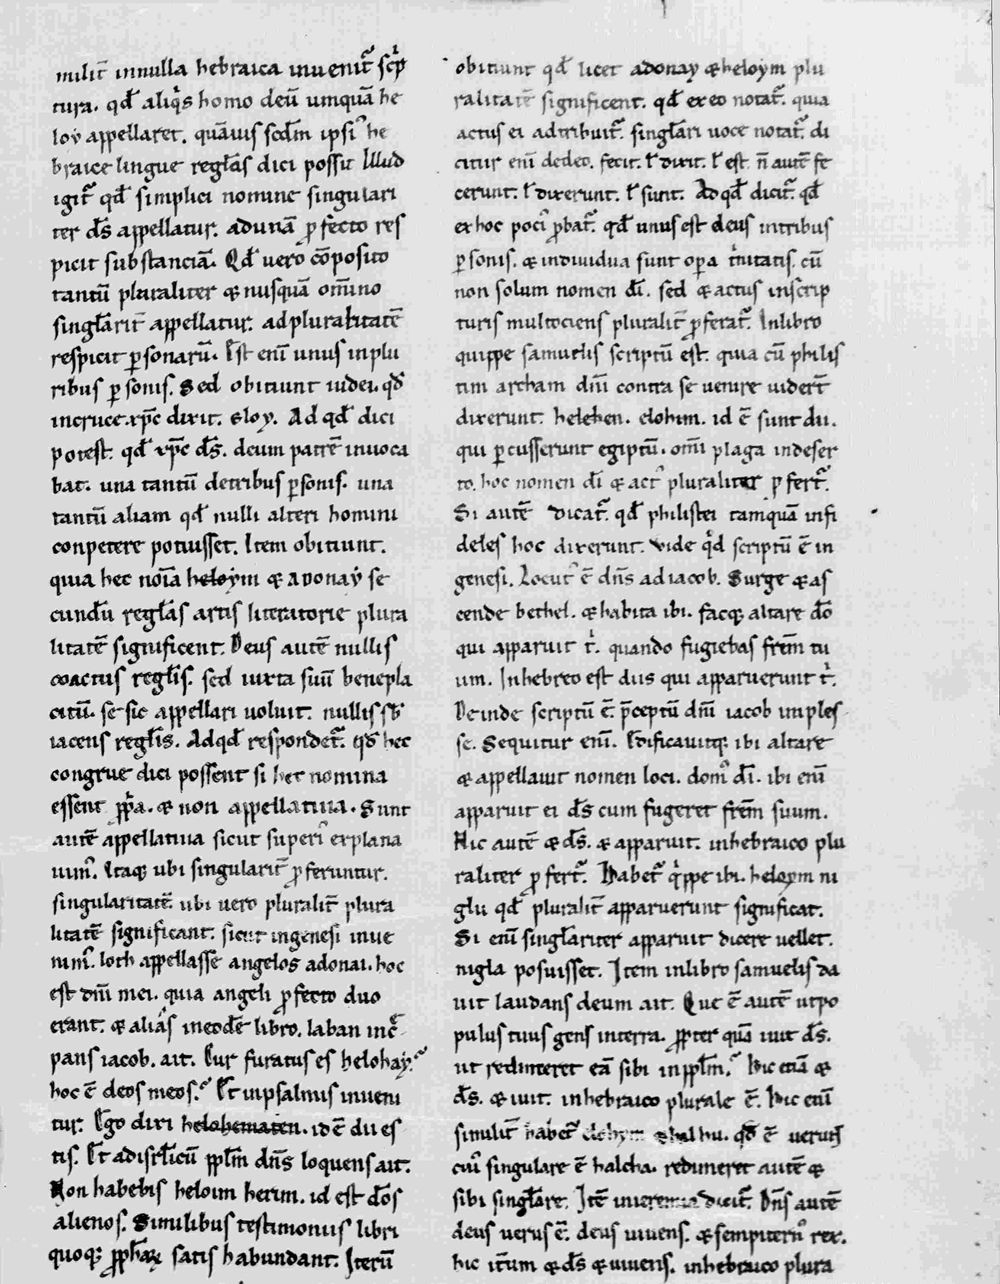 milit̄ in nulla hebraica inuenit᷑ sc̄p
tura. qd̄ aliq̇s homo deū umquā he
loy appellaret. quāuis scd̄m ipsiꝰ he
braice lingue regl̄as dici possit Illud
igit᷑ qd̄ simplici nomine singulari
ter d̄s appellatur. ad unā ꝓfecto res
picit substanciā. Qd̄ uero cōposito
tantū pluraliter & nusquā om̄ino
singl̄arit̄ appellatur. ad pluralitatē
respicit ꝑsonarū. Est enī unus in plu
ribus ꝑsonis. Sed obitiunt iudei. qd̄
in cruce xp̄c dixit. eloy. Ad qd̄ dici
potest. qd̄ xp̄c d̄s. deum patrē inuoca
bat. una tantū de tribus ꝑsonis. una
tantū aliam qd̄ nulli alteri homini
conpetere potuisset. Item obitiunt.
quia hec noīa heloym & adonay se
cundū regl̄as artis literatorie plura
litatē significent. Deus autē nullis
coactus regl̄is. sed iuxta suū benepla
citū. se sic appellari uoluit. nullis sb̄
iacens regl̄is. Ad qd̄ respondet᷑. qd̄ hec
congrue dici possent si hec nomina
essent pp̄a. & non appellatiua. Sunt
autē appellatiua sicut superiꝰ explana
uimꝰ. Itaq; ubi singularit̄ ꝓferuntur.
singularitatē. ubi uero pluralit̄ plura
litatē significant. sicut in genesi inue
nimꝰ. loth appellasse angelos adonai. hoc
est dn̄i mei. quia angeli ꝓfecto duo
erant. & aliās in eodē libro. laban incr̄
pans iacob. ait. Cur furatus es helohay.
hoc ē deos meos. Et in psalmis inueni
tur. Ego dixi helohematen. id ē dii es
tis. Et ad isrl̄icū ppl̄m dn̄s loquens ait.
Non habebis heloim herim. id est dōs
alienos. Similibus testimoniis libri
quoq; ꝓphaꝝ satis habundant. Iterū
obitiunt qd̄ licet adonay & heloym plu
ralitatē significent. qd̄ ex eo notat᷑. quia
actus ei adtribuit᷑. singl̄ari uoce notat᷑. di
citur enī de deo. fecit. ł dixit. ł est. n̄ autē fe
cerunt. ł dixerunt. ł sunt. Ad qd̄ dicit᷑. qd̄
ex hoc pociꝰ ꝓbat᷑. qd̄ unus est deus in tribus
ꝑsonis. & indiuidua sunt oꝑa t̍nitatis. cū
non solum nomen dī. sed & actus in scrip
turis multociens pluralit̄ ꝓferat᷑. In libro
quippe samuelis scriptū est. quia cū philis
tim archam dn̄i contra se uenire uiderē̄t
dixerunt. helehen. elohim. id ē sunt dii.
qui ꝑcusserunt egiptū. omī plaga in deser
to. hoc nomen dī & actꝰ pluraliter ꝓfert᷑.
Si autē dicat᷑. qd̄ philistei tamquā infi
deles hoc dixerunt. uide qd̄ scriptū ē in
genesi. Locutꝰ ē dn̄s ad iacob. Surge & as
cende bethel. & habita ibi. facq; altare dō
qui apparuit t̍. quando fugiebas frēm tu
um. In hebreo est diis qui apparuerunt t̍.
Deinde scriptū ē. p̄ceptū dn̄i iacob imples
se. Sequitur enī. Edificauitq; ibi altare
& appellauit nomen loci. domꝰ dī. ibi enī
apparuit ei d̄s cum fugeret frēm suum.
Hic autē & d̄s. & apparuit. in hebraico plu
raliter ꝓfert᷑. Habet᷑ q̇ppe ibi. heloym ni
glu qd̄ pluralit̄ apparuerunt significat.
Si enī singl̄ariter apparuit dicere uellet.
nigla posuisset. Item in libro samuelis da
uit laudans deum ait. Que ē autē ut po
pulus tuus gens in terra. ꝓpter quā iuit d̄s.
ut redimeret eā sibi in ppl̄m. Hic etiā &
d̄s. & iuit. in hebraico plurale ē. Hic enī
similit̄ habet᷑ elohym halhu. qd̄ ē
cuiꝰ singulare ē halcha. redimeret autē &
sibi singl̄are. Itē in dicit᷑. Dn̄s autē
deus uerus ē. deus uiuens. & sempiternꝰ rex.
hic it̄um & d̄s & uiuens. in hebraico plura